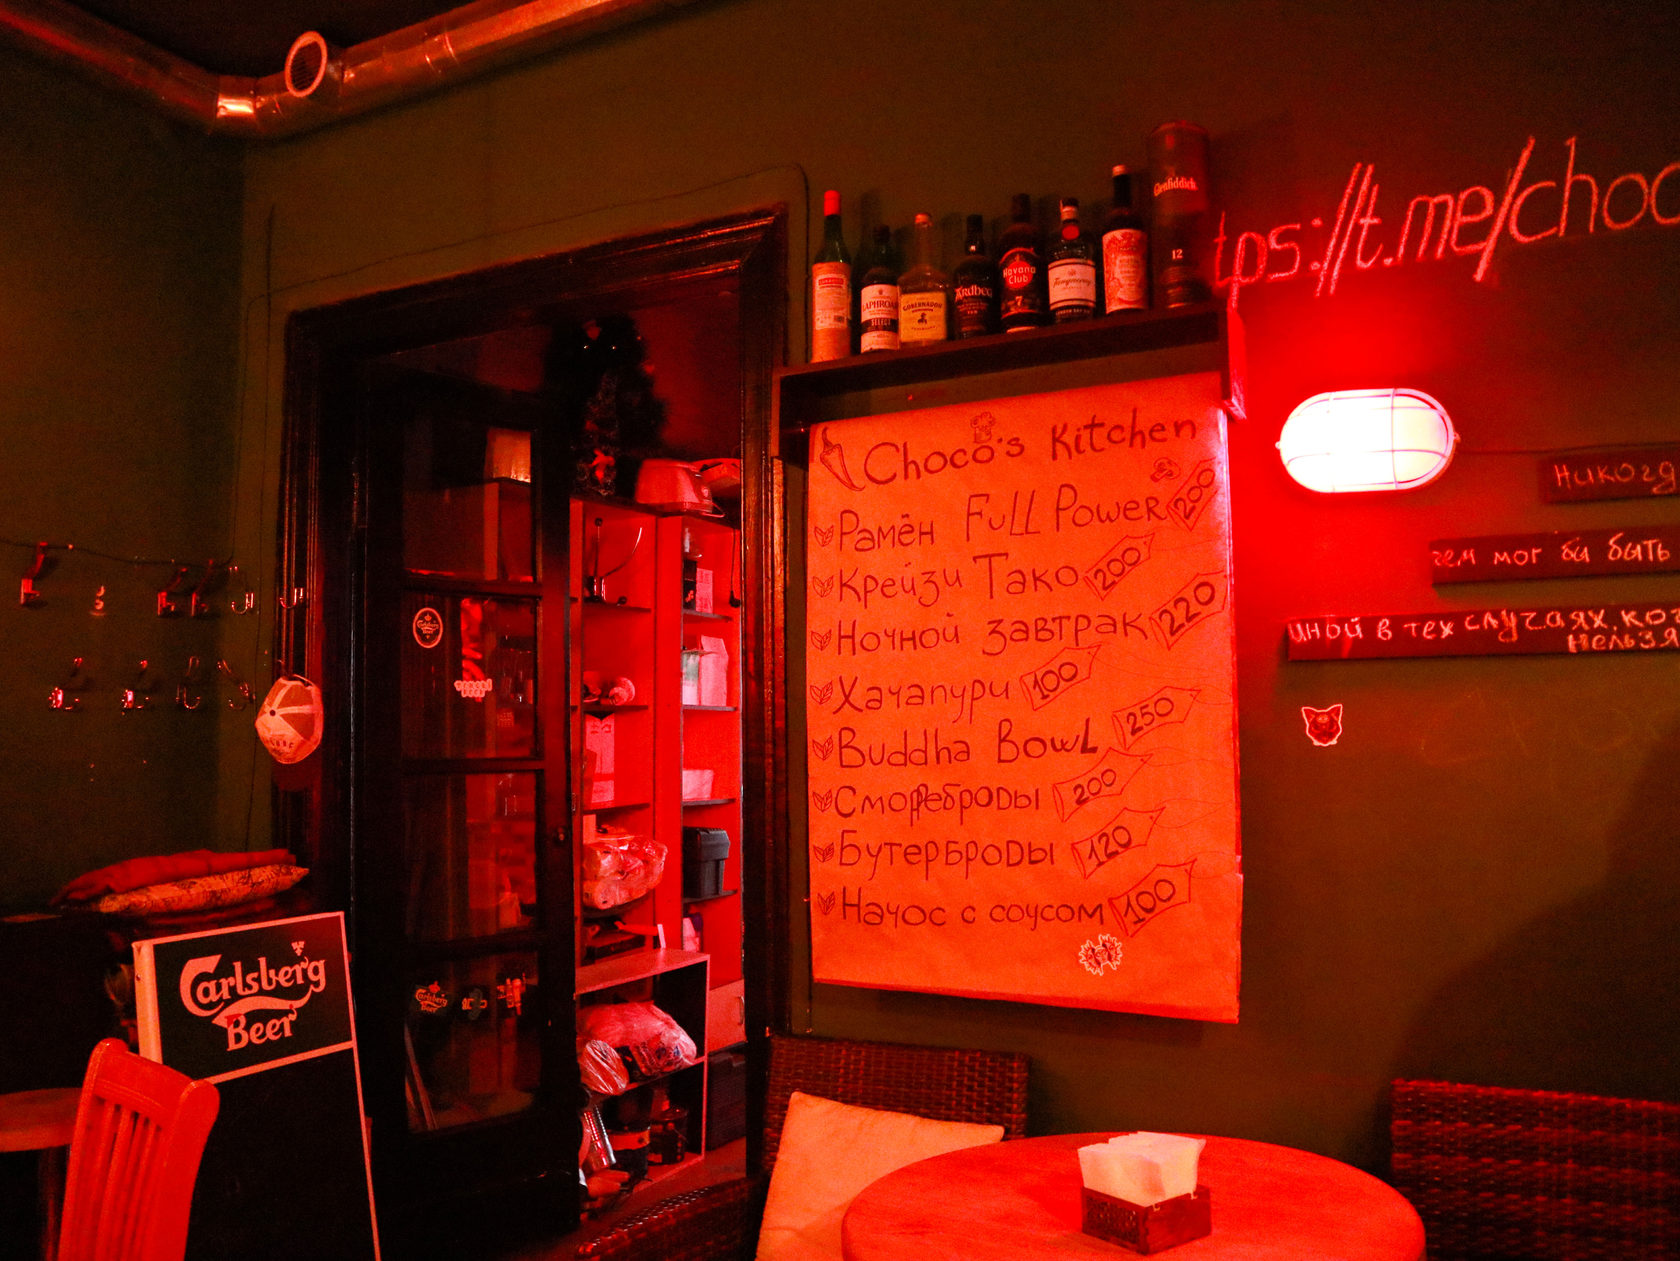 tps://t.me/choc
Glenfiddich
12
Havana
Club
7
Ardbeg
SELECT
Tanqueray
Choco's Kitchen
Рамён Full Power 200
Крейзи Тако 200
Ночной завтрак 220
Хачапури 100
Buddha Bowl 250
Сморреброды 200
Бутерброды 120
Начос с соусом 100
никогд
чем мог бы быть
иной в тех случаях, ко
нельзя
Carlsberg
Beer
Carlsberg
Beer
Carlsberg
Beer